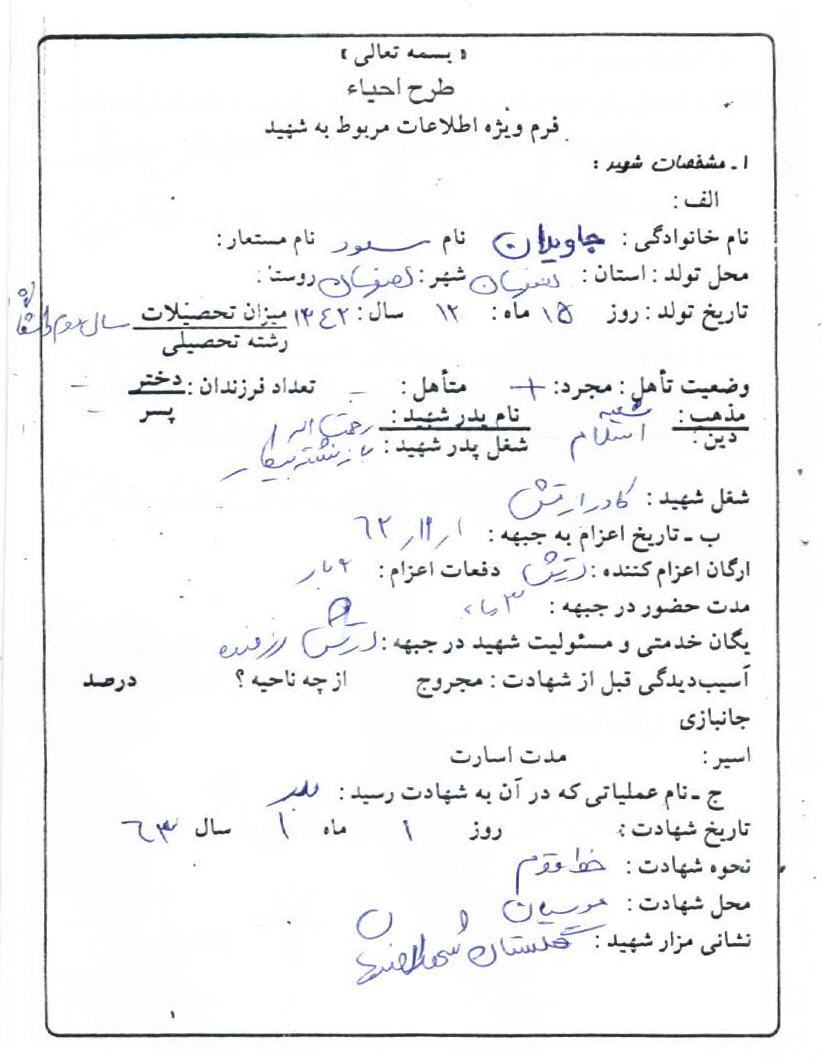 « بسمه تعالی »
طرح احیاء
فرم ویژه اطلاعات مربوط به شهید
۱ ـ مشخصات شهید :
الف :
نام خانوادگی : جاویدان نام مسعود نام مستعار :
محل تولد : استان : اصفهان شهر : اصفهان روستا :
تاریخ تولد : روز ۱۵ ماه : ۱۲ سال : ۱۳۴۲ میزان تحصیلات سال دوم دانشگاه
رشته تحصیلی
وضعیت تأهل : مجرد : + متأهل : – تعداد فرزندان : دختر –
پسر –
مذهب : شیعه نام پدر شهید : رحمت اله
دین : اسلام شغل پدر شهید : بازنشسته بیکار
شغل شهید : کادر ارتش
ب ـ تاریخ اعزام به جبهه : ۶۲
ارگان اعزام کننده : ارتش دفعات اعزام : بار
مدت حضور در جبهه : ۳ ماه
یگان خدمتی و مسئولیت شهید در جبهه : ارتش رزمنده
آسیب‌دیدگی قبل از شهادت : مجروح از چه ناحیه ؟ درصد
جانبازی
اسیر : مدت اسارت
ج ـ نام عملیاتی که در آن به شهادت رسید : بدر
تاریخ شهادت : روز ۱ ماه ۱ سال ۶۳
نحوه شهادت : خط مقدم
محل شهادت : موسیان
نشانی مزار شهید : گلستان شهدا اصفهان
۱